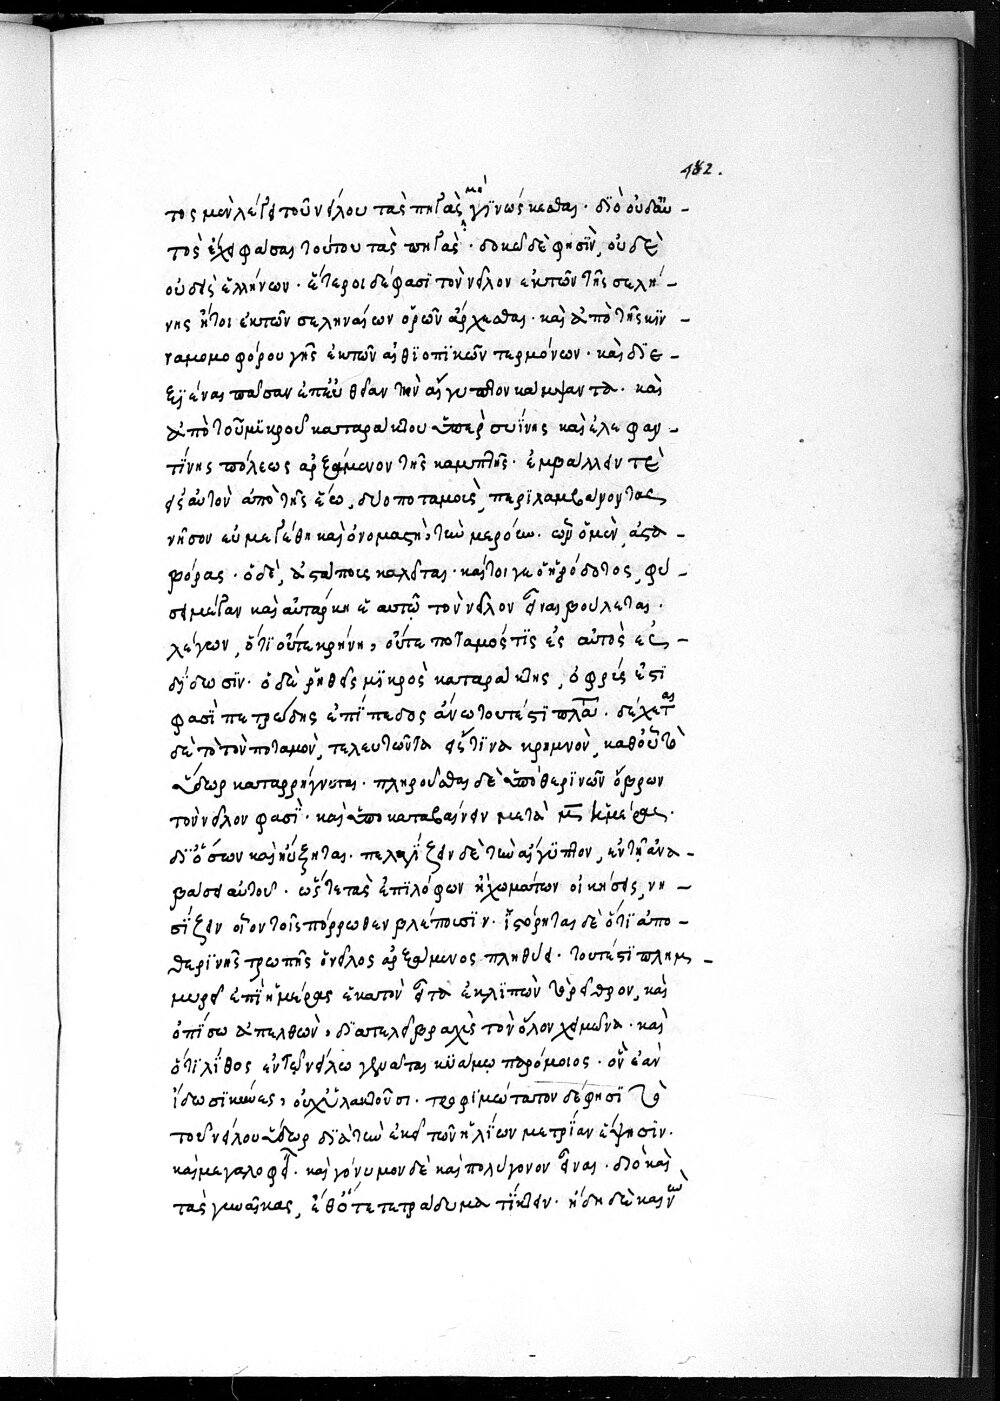 182.
τος μὲν λέγει τοῦ νείλου τὰς πηγὰς μὴ γινώσκεσθαι· διὸ οὐδ' αὐ-
τὸς ἐκφᾶσαι τούτου τὰς πηγὰς· δοκεῖ δὲ φησὶν, οὐδὲ
οὐδεὶς ἑλλήνων· ἕτεροι δέ φασι τὸν νεῖλον ἐκ τῶν τῆς σελή-
νης ἤτοι ἐκ τῶν σεληναίων ὀρῶν ἄρχεσθαι· καὶ ἀπὸ τῆς κιν-
ναμομοφόρου γῆς ἐκ τῶν αἰθιοπικῶν τερμόνων· καὶ διε-
ξιέναι πᾶσαν ἐπ' εὐθεῖαν τὴν αἴγυπτον κάμψαντα· καὶ
ἀπὸ τοῦ μικροῦ καταράκτου ὑπὲρ συΐνης καὶ ἐλεφαν-
τίνης πόλεως ἀρξάμενον τῆς καμπῆς· ἐμβάλλειν τὲ
εἰς αὐτὸν ἀπὸ τῆς ἕω, δύο ποταμοὺς, περιλαμβάνοντας
νῆσον εὐμεγέθη καὶ ὀνομαστὴν, τὴν μερόην. ὧν ὁ μὲν, ἀστα-
βόρας· ὁ δὲ, ἀστάπους καλεῖται· καίτοι γε ὁ ἡρόδοτος, φύ-
σει μέγαν καὶ αὐτάρκη ἑαυτῷ τὸν νεῖλον εἶναι βούλεται.
λέγων, ὅτι οὔτε κρήνη, οὔτε ποταμός τις ἐς αὐτὸς ἐσ-
δίδωσιν· ὁ δὲ ῥηθεὶς μικρὸς καταράκτης, ὀφρύς ἐστι
φασὶ πετρώδης ἐπίπεδος ἄνω τουτέστι πλ· δέχεται
δὲ τὸ τὸν ποταμὸν, τελευτῶντα εἴς τινα κρημνὸν, καθ' οὗ τὸ
ὕδωρ καταρρήγνυται· πληροῦσθαι δὲ ὑπὸ θερινῶν ὄμβρων
τὸν νεῖλον φασὶ· καὶ ὑποκαταβαίνειν μετὰ μ ἡμέρας.
δι' ὅσων καὶ ηὔξηται· πελαγίζειν δὲ τὴν αἴγυπτον, ἐν τῇ ἀνα-
βάσει αὐτοῦ· ὥς τε τὰς ἐπὶ λόφων ἢ χωμάτων οἰκήσεις, νη-
σίζειν οἷον τοῖς πόρρωθεν βλέπουσιν· ἱστόρηται δὲ ὅτι ἀπὸ
θερινῆς τροπῆς ὁ νεῖλος ἀρξάμενος πληθύει· τουτέστι πλημ-
μυρεῖ ἐπὶ ἡμέρας ἑκατὸν εἶτα ἐκλιπὼν τὸ ῥέεθρον, καὶ
ὀπίσω ἀπελθὼν, διατελεῖ βραχὺς τὸν ὅλον χειμῶνα· καὶ
ὅτι λίθος ἐν τῷ νείλῳ γεννᾶται κυάμῳ παρόμοιος· ὃν ἐὰν
ἴδωσι κύνες, οὐχ ὑλακτοῦσι· τροφιμώτατον δέ φησι τὸ
τοῦ νείλου ὕδωρ διὰ τὴν ἐκ τῶν ἡλίων μετρίαν ἕψησιν.
καὶ μεγαλοφυὲς· καὶ γόνιμον δὲ καὶ πολύγονον εἶναι· διὸ καὶ
τὰς γυναῖκας, ἔσθ' ὅτε τετράδυμα τίκτειν· ἤδη δὲ καὶ